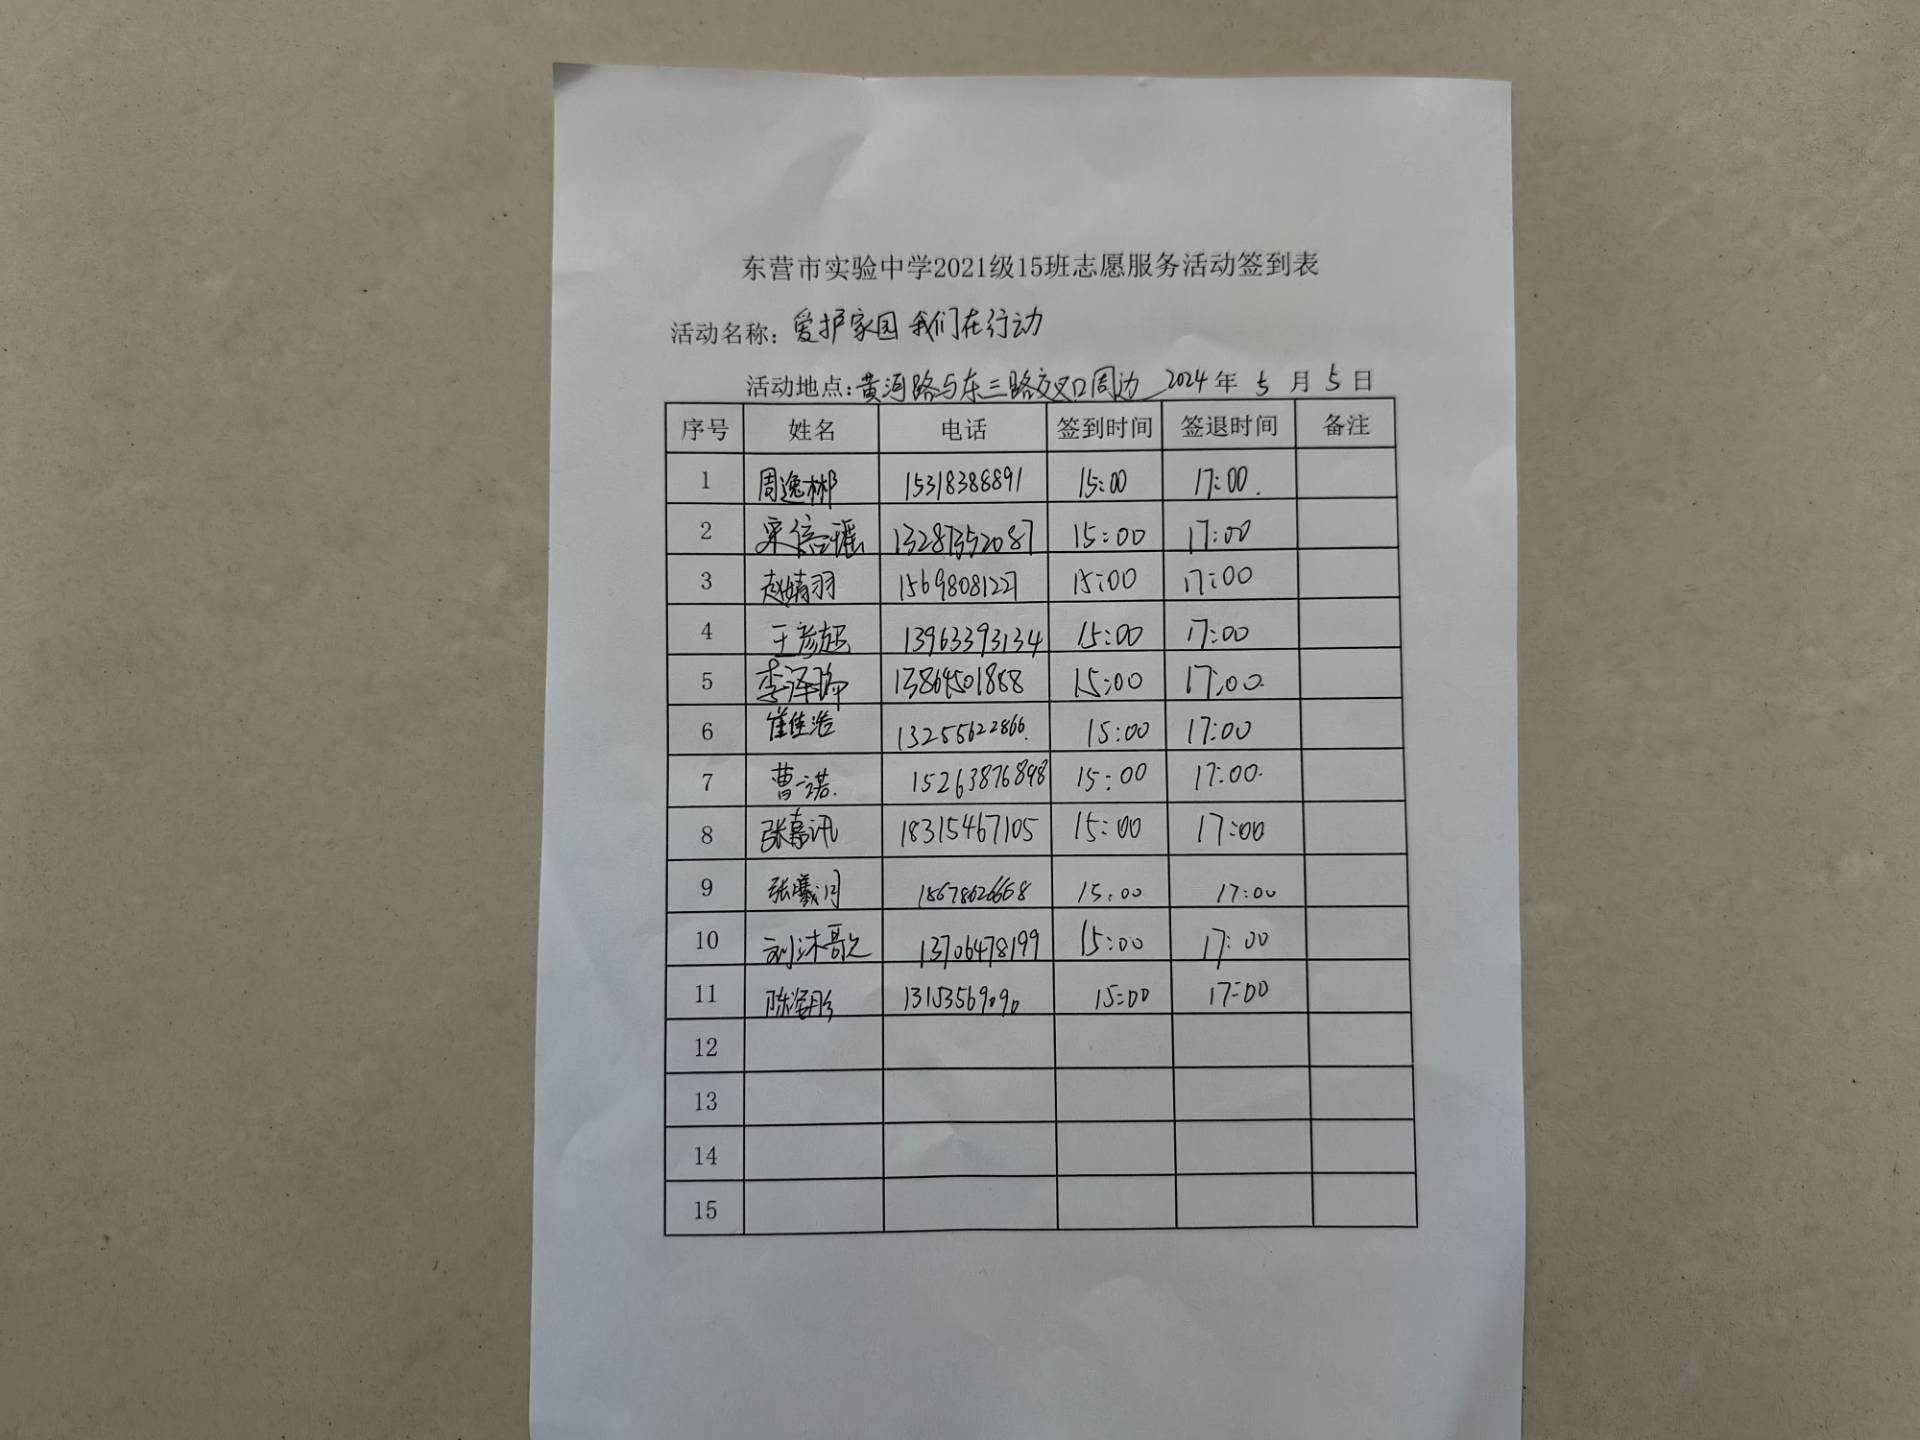 东营市实验中学2021级15班志愿服务活动签到表
活动名称：爱护家园 我们在行动
活动地点：黄河路与东三路交叉口周边 2024年5月5日
序号 姓名 电话 签到时间 签退时间 备注
1 周逸彬 15318388891 15:00 17:00.
2 宋信瑶 13287352087 15:00 17:00
3 赵婧羽 15698081227 15:00 17:00
4 王彦超 13963393134 15:00 17:00
5 李泽 13864501888 15:00 17:00.
6 崔佳浩 13255622866. 15:00 17:00
7 曹一诺. 15263876898 15:00 17:00.
8 张嘉讯 18315467105 15:00 17:00
9 张曦 18678626668 15:00 17:00
10 刘沐歌 13706478199 15:00 17:00
11 陈姿彤 13153569090 15:00 17:00
12
13
14
15